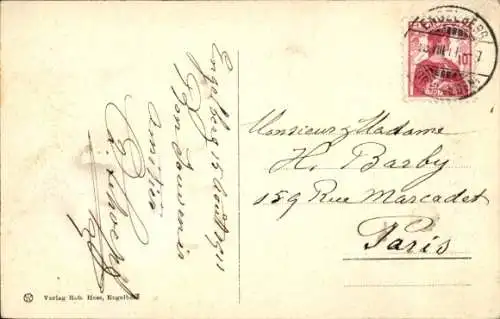 Engelberg 15 août 1911
Bon Souvenir
amitiés
Monsieur & Madame
H. Barby
159 Rue Marcadet
Paris
ENGELBERG
10
Verlag Rob. Hess, Engelberg